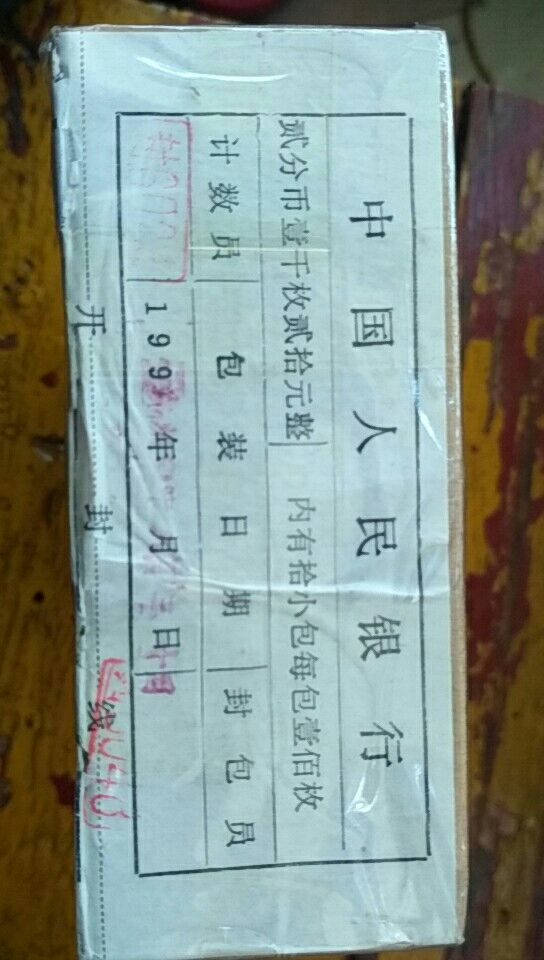 中国人民银行
贰分币壹千枚贰拾元整 内有拾小包每包壹佰枚
计数员 包装日期 封包员
199 年 月 日
开封线